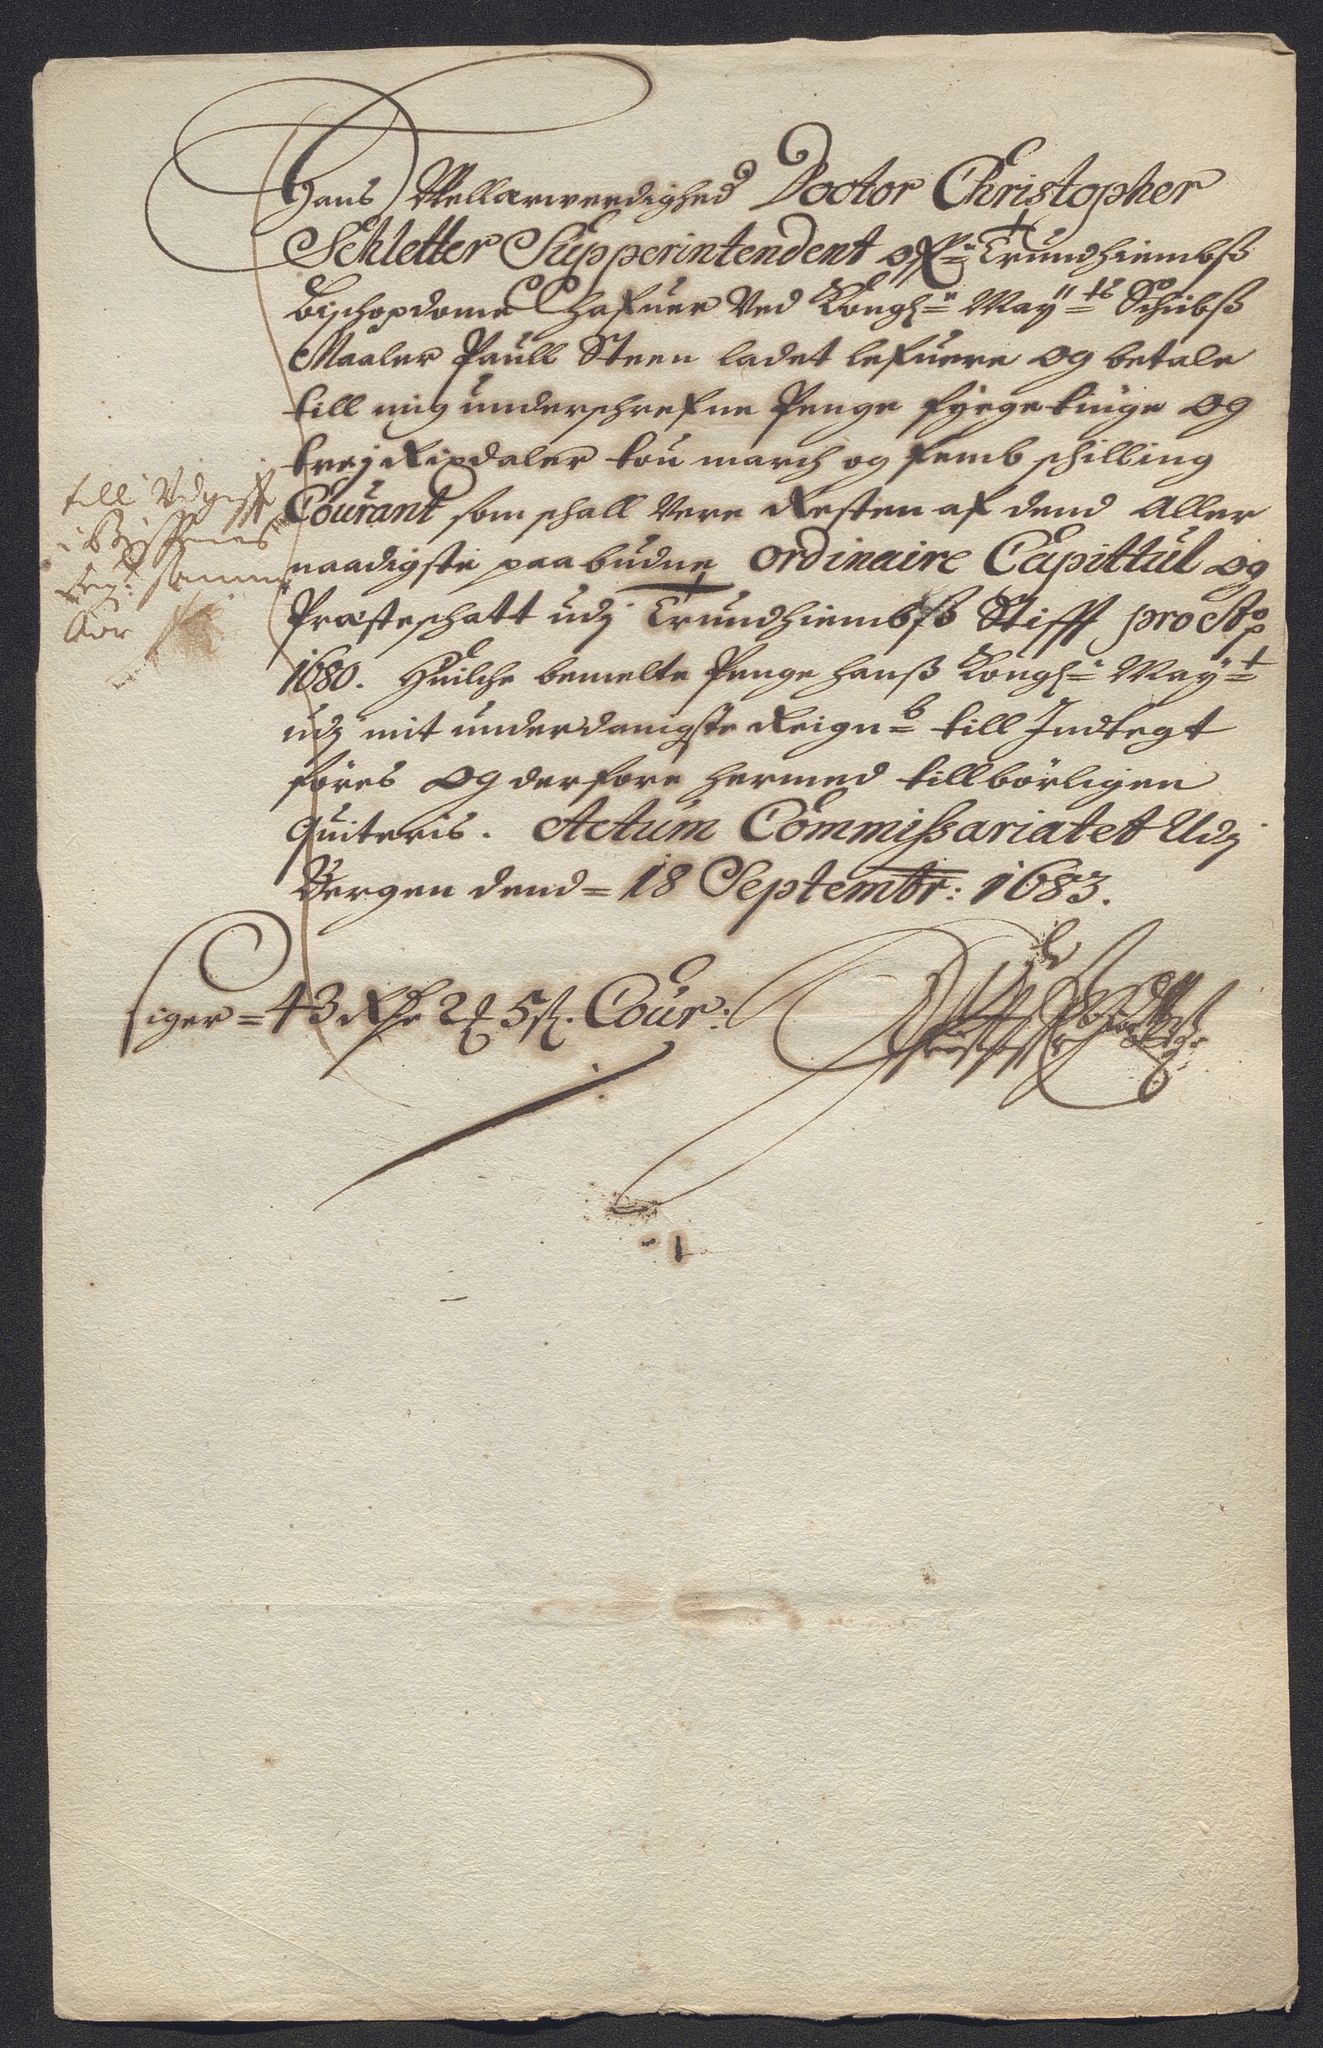 Hans Wellærwerdighed Doctor Christopher
Schletter Supperintendent ofr Trundhiembsß
Bischopdome hafuer Ved Kongh: May:ts Schibß
Maaler Paull Steen ladet lefuere og betale
till mig underschrefne Penge fyrgetiuge og
trej Rixdaler tou march og femb schilling
Courant som schall Vere Resten af dend Aller
naadigste paabudne Ordinaire Capittul og
Præsteschatt udj Trundhiembsß Stifft pro Ao
1680. Huilche bemelte Penge hanß Kongh: May:t
udj mit underdanigste Reign: till Indtegt
föres og derfore hermed tillbörligen
quiteris. Actum Commissariatet Udj
Bergen dend = 18 Septembr: 1683.
siger = 43 Rdr 2 ₰ 5 ß. Cour:
till Udgifft
i Bispens
Regn: samme
Aar